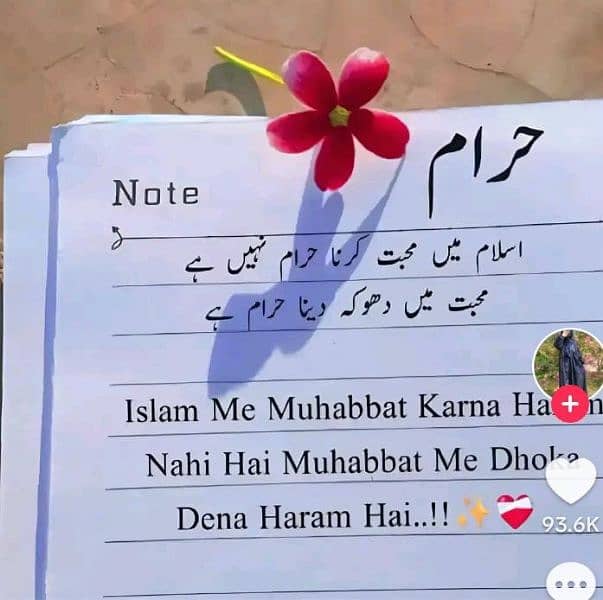 حرام
Note
اسلام میں محبت کرنا حرام نہیں ہے
محبت میں دھوکہ دینا حرام ہے
Islam Me Muhabbat Karna
Nahi Hai Muhabbat Me Dhoka
Dena Haram Hai..!!✨❤️‍🩹
93.6K